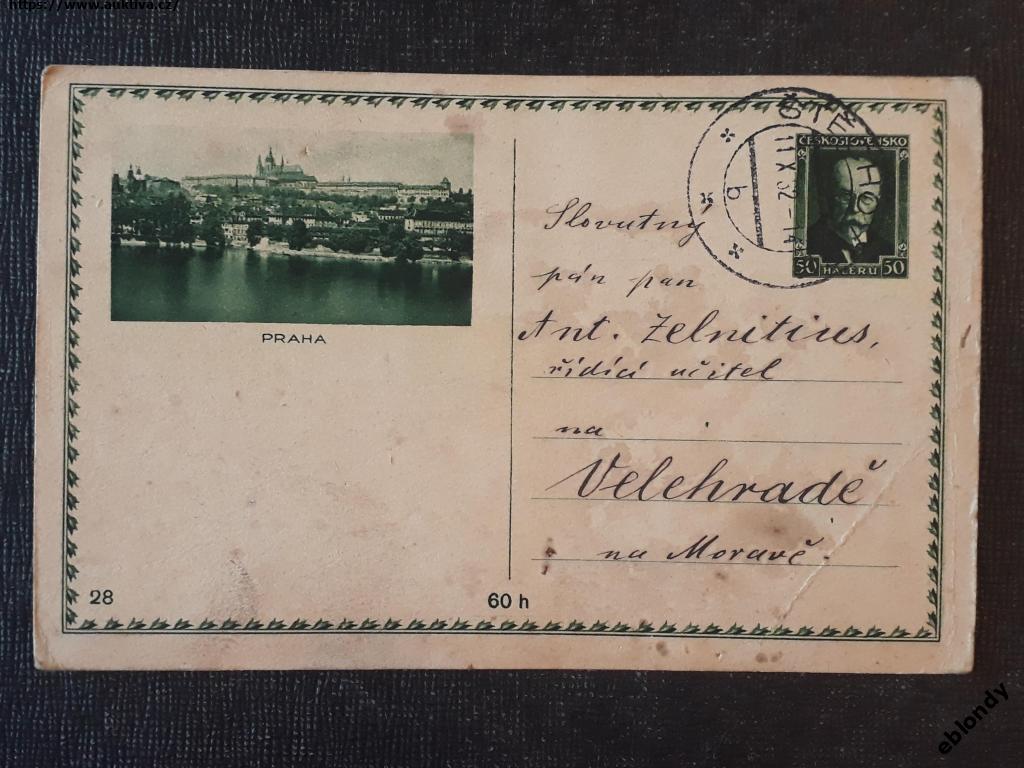 https://www.auktiva.cz/
PRAHA
ČESKOSLOVENSKO
50 HALÉŘŮ 50
11 X 32 - 14
b
Slovutný
pán pan
Ant. Zelnitius,
řídící učitel
na
Velehradě
na Moravě.
28
60 h
eblondy